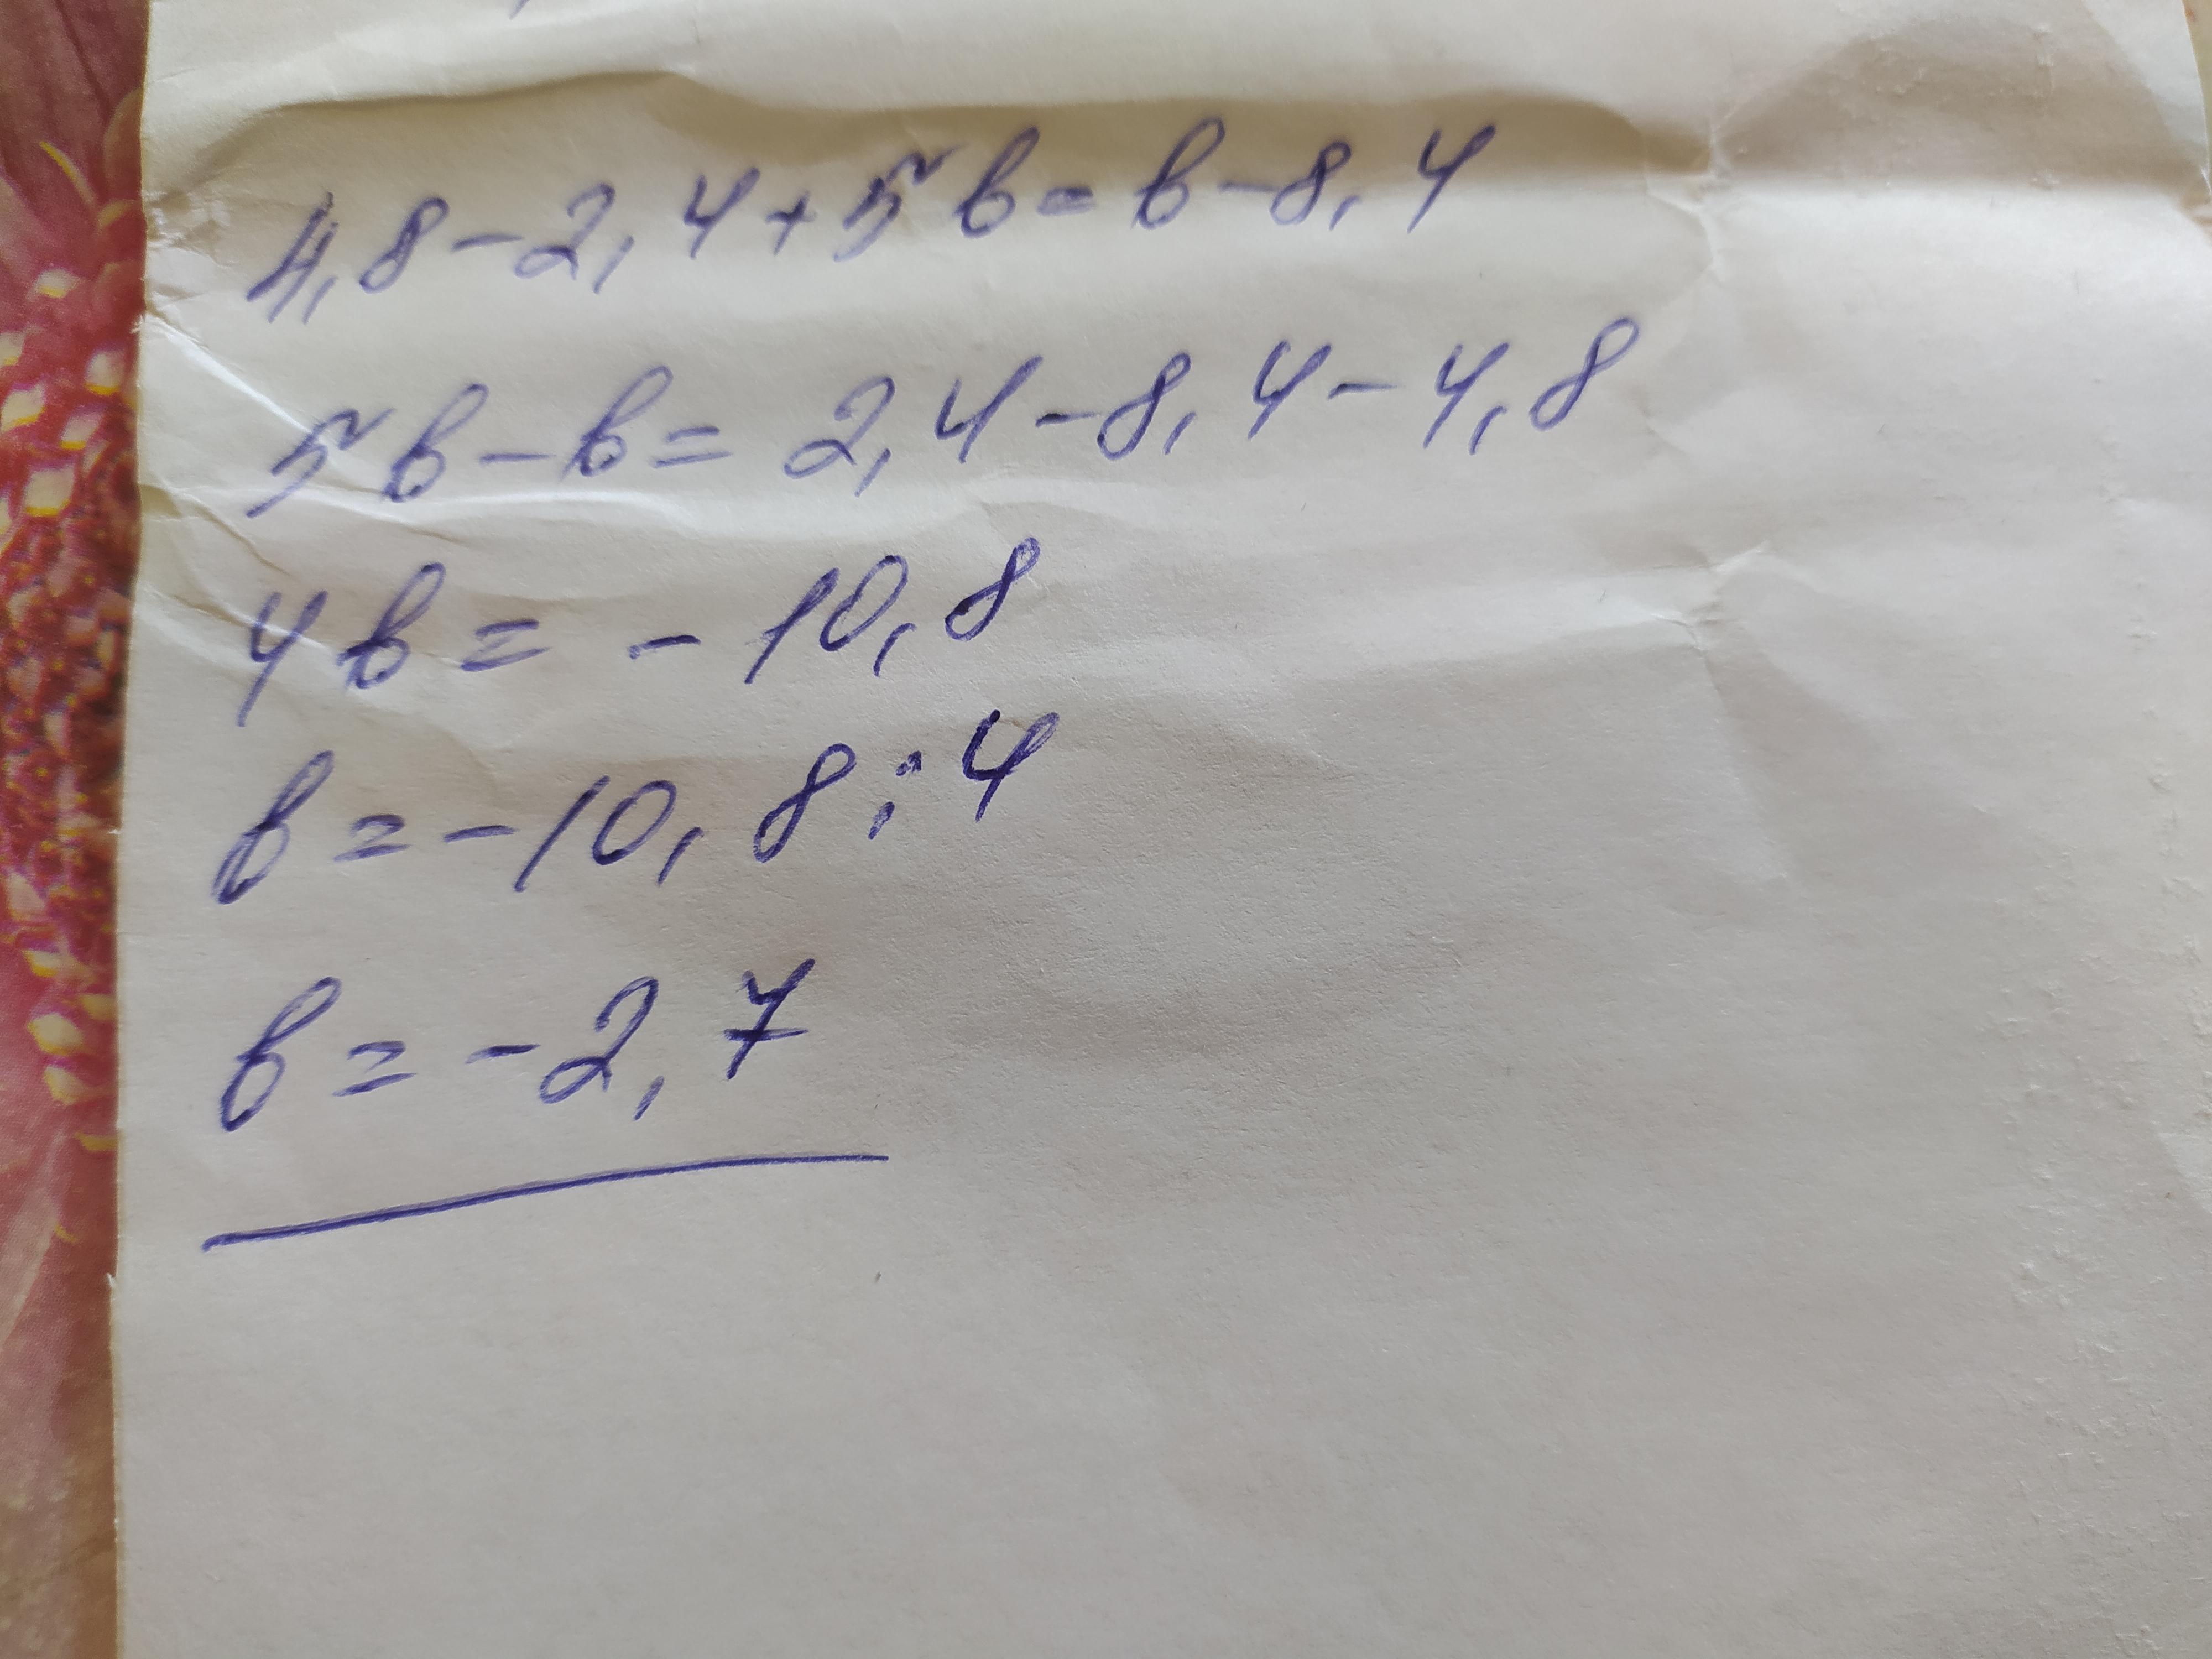 4,8-2,4+5в=в-8,4
5в-в=2,4-8,4-4,8
4в=-10,8
в=-10,8:4
в=-2,7